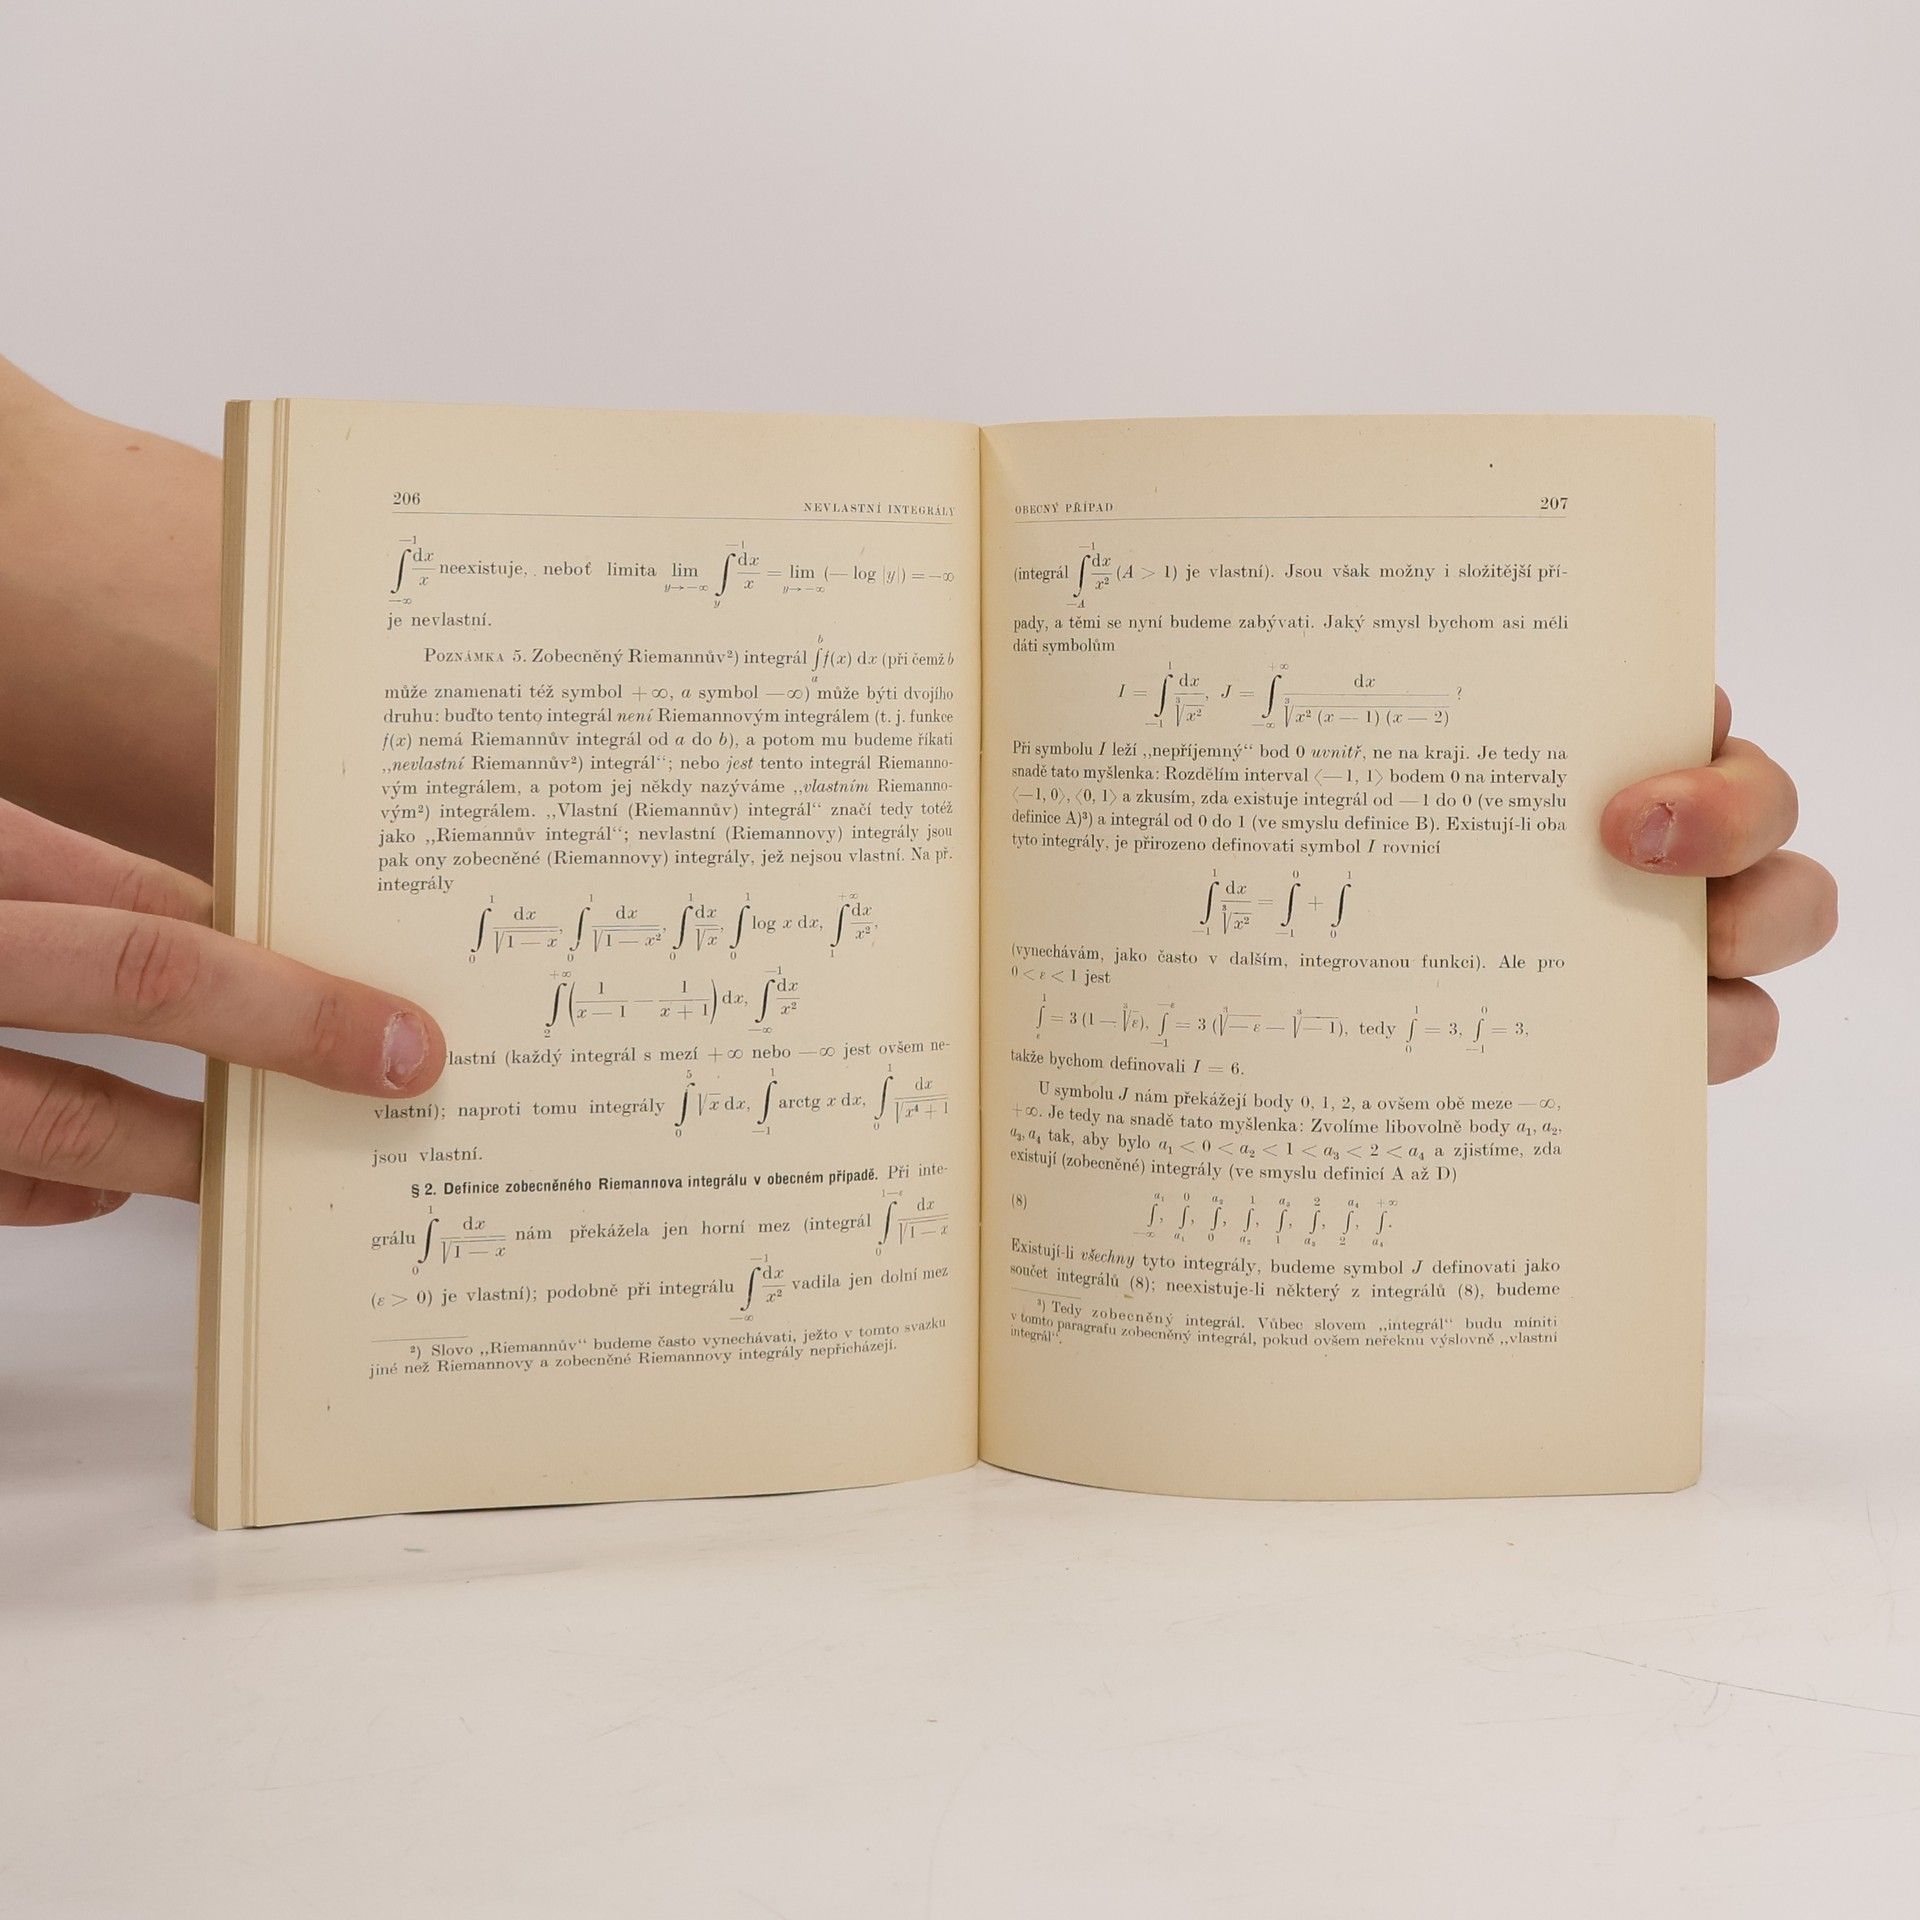 206 NEVLASTNÍ INTEGRÁLY
∫_{—∞}^{—1} dx/x neexistuje, neboť limita lim_{y→—∞} ∫_{y}^{—1} dx/x = lim_{y→—∞} (— log |y|) = —∞
je nevlastní.
POZNÁMKA 5. Zobecněný Riemannův²) integrál ∫_{a}^{b} f(x) dx (při čemž b
může znamenati též symbol +∞, a symbol —∞) může býti dvojího
druhu: buďto tento integrál není Riemannovým integrálem (t. j. funkce
f(x) nemá Riemannův integrál od a do b), a potom mu budeme říkati
„nevlastní Riemannův²) integrál“; nebo jest tento integrál Riemanno-
vým integrálem, a potom jej někdy nazýváme „vlastním Riemanno-
vým²) integrálem. „Vlastní (Riemannův) integrál“ značí tedy totéž
jako „Riemannův integrál“; nevlastní (Riemannovy) integrály jsou
pak ony zobecněné (Riemannovy) integrály, jež nejsou vlastní. Na př.
integrály
∫_{0}^{1} dx/√(1 — x), ∫_{0}^{1} dx/√(1 — x²), ∫_{0}^{1} dx/√x, ∫_{0}^{1} log x dx, ∫_{1}^{+∞} dx/x²,
∫_{2}^{+∞} (1/(x — 1) — 1/(x + 1)) dx, ∫_{—∞}^{—1} dx/x²
lastní (každý integrál s mezí +∞ nebo —∞ jest ovšem ne-
vlastní); naproti tomu integrály ∫_{0}^{5} √x dx, ∫_{—1}^{1} arctg x dx, ∫_{0}^{1} dx/√(x⁴ + 1)
jsou vlastní.
§ 2. Definice zobecněného Riemannova integrálu v obecném případě. Při inte-
grálu ∫_{0}^{1} dx/√(1 — x) nám překážela jen horní mez (integrál ∫_{0}^{1—ε} dx/√(1 — x)
(ε > 0) je vlastní); podobně při integrálu ∫_{—∞}^{—1} dx/x² vadila jen dolní mez
²) Slovo „Riemannův“ budeme často vynechávati, ježto v tomto svazku
jiné než Riemannovy a zobecněné Riemannovy integrály nepřicházejí.
OBECNÝ PŘÍPAD 207
(integrál ∫_{—A}^{—1} dx/x² (A > 1) je vlastní). Jsou však možny i složitější pří-
pady, a těmi se nyní budeme zabývati. Jaký smysl bychom asi měli
dáti symbolům
I = ∫_{—1}^{1} dx/∛(x²), J = ∫_{—∞}^{+∞} dx/∛(x² (x — 1) (x — 2)) ?
Při symbolu I leží „nepříjemný“ bod 0 uvnitř, ne na kraji. Je tedy na
snadě tato myšlenka: Rozdělím interval ⟨—1, 1⟩ bodem 0 na intervaly
⟨—1, 0⟩, ⟨0, 1⟩ a zkusím, zda existuje integrál od —1 do 0 (ve smyslu
definice A)³) a integrál od 0 do 1 (ve smyslu definice B). Existují-li oba
tyto integrály, je přirozeno definovati symbol I rovnicí
∫_{—1}^{1} dx/∛(x²) = ∫_{—1}^{0} + ∫_{0}^{1}
(vynechávám, jako často v dalším, integrovanou funkci). Ale pro
0 < ε < 1 jest
∫_{ε}^{1} = 3 (1 — ∛ε), ∫_{—1}^{—ε} = 3 (∛(—ε) — ∛(—1)), tedy ∫_{0}^{1} = 3, ∫_{—1}^{0} = 3,
takže bychom definovali I = 6.
U symbolu J nám překážejí body 0, 1, 2, a ovšem obě meze —∞,
+∞. Je tedy na snadě tato myšlenka: Zvolíme libovolně body a₁, a₂,
a₃, a₄ tak, aby bylo a₁ < 0 < a₂ < 1 < a₃ < 2 < a₄ a zjistíme, zda
existují (zobecněné) integrály (ve smyslu definicí A až D)
(8) ∫_{—∞}^{a₁}, ∫_{a₁}^{0}, ∫_{0}^{a₂}, ∫_{a₂}^{1}, ∫_{1}^{a₃}, ∫_{a₃}^{2}, ∫_{2}^{a₄}, ∫_{a₄}^{+∞}.
Existují-li všechny tyto integrály, budeme symbol J definovati jako
součet integrálů (8); neexistuje-li některý z integrálů (8), budeme
³) Tedy zobecněný integrál. Vůbec slovem „integrál“ budu míniti
v tomto paragrafu zobecněný integrál, pokud ovšem neřeknu výslovně „vlastní
integrál“.